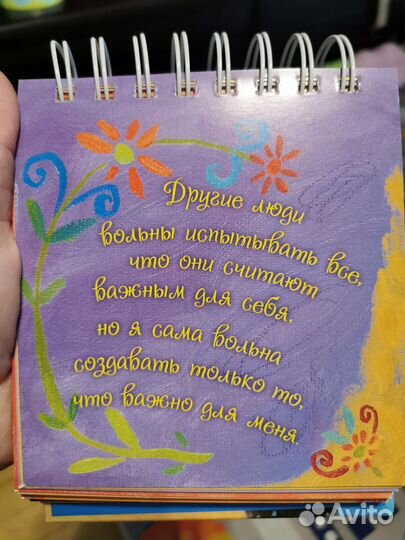 Другие люди
вольны испытывать все,
что они считают
важным для себя,
но я сама вольна
создавать только то,
что важно для меня.
Avito